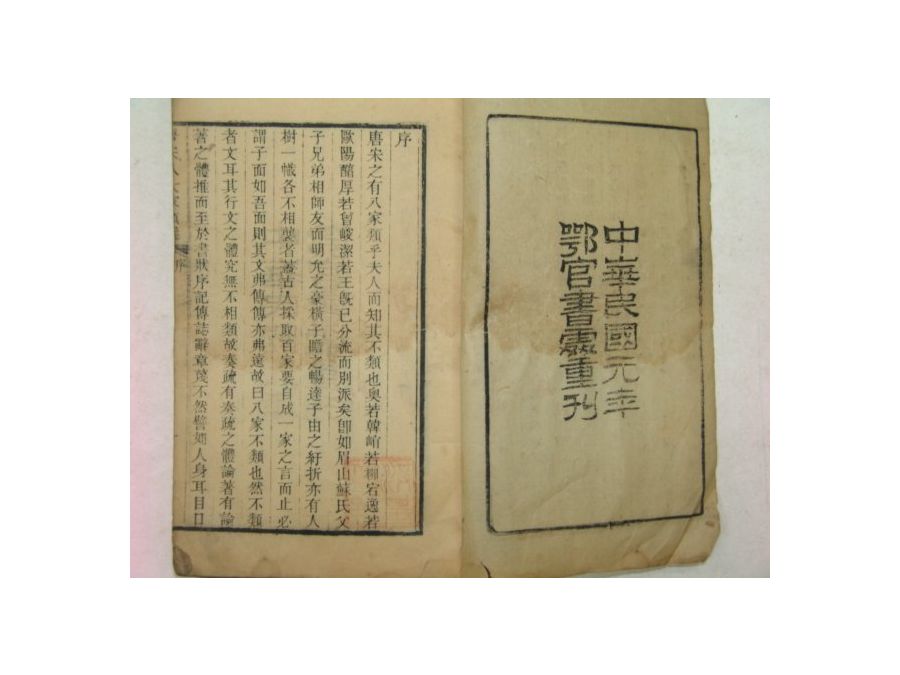 中華民國元年
鄂官書處重刊
序
唐宋之有八家類乎夫人而知其不類也奥若韓峭若柳宕逸若
歐陽醇厚若曾峻潔若王既已分流而別派矣卽如眉山蘇氏父
子兄弟相師友而明允之豪橫子瞻之暢達子由之紆折亦有人
樹一幟各不相襲者蓋古人採取百家要自成一家之言而止必
謂子面如吾面則其文弗傳傳亦弗遠故曰八家不類也然不類
者文耳其行文之體究無不相類故奏疏有奏疏之體論著有論
著之體推而至於書狀序記傳誌辭章莫不然譬如人身耳目口
序